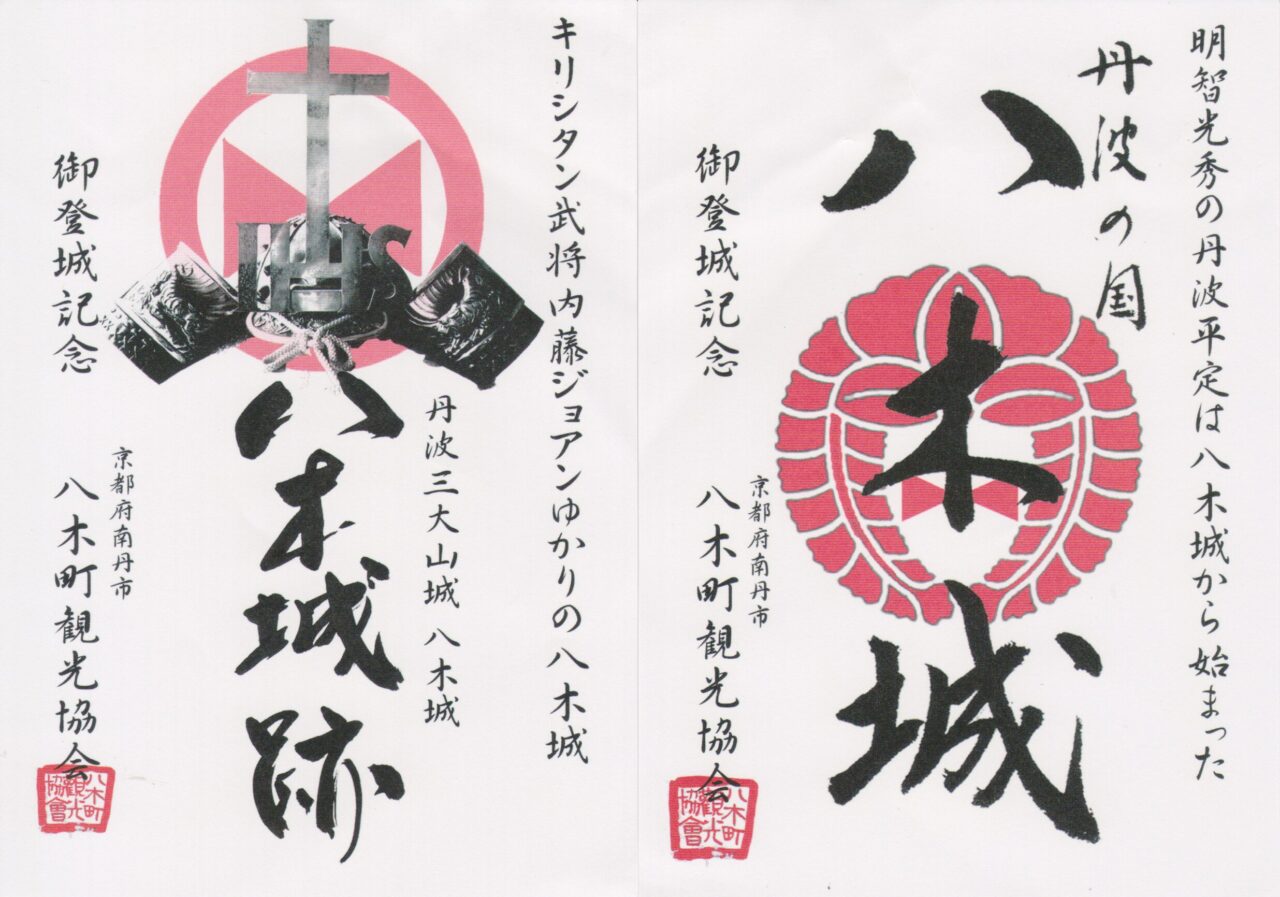 キリシタン武将内藤ジョアンゆかりの八木城
丹波三大山城 八木城
IHS
八木城跡
御登城記念
京都府南丹市
八木町観光協会
八木町
観光
協會
明智光秀の丹波平定は八木城から始まった
丹波の国
八木城
御登城記念
京都府南丹市
八木町観光協会
八木町
観光
協會